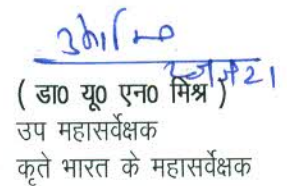 ( डा० यू० एन० मिश्र )
उप महासर्वेक्षक
कृते भारत के महासर्वेक्षक